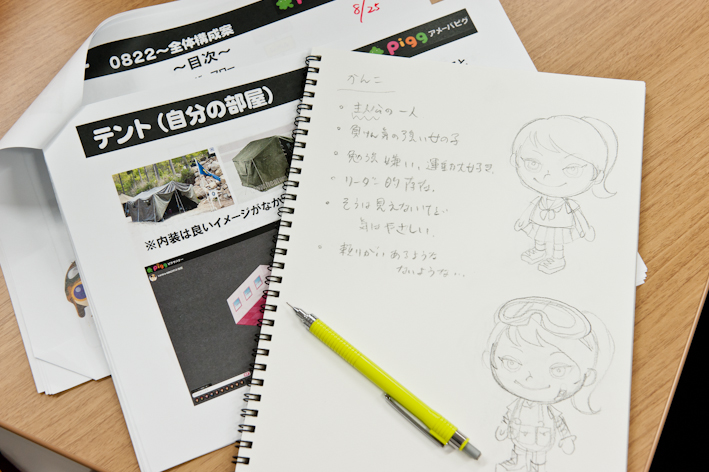 8/25
pigg アメーバピグ
0822〜全体構成案
〜目次〜
テント（自分の部屋）
※内装は良いイメージがなか
pigg
かんこ
・主人公の一人
・負けん気の強い女の子
・勉強は嫌い、運動大好き。
・リーダー的存在。
・そうは見えないけど…
気はやさしい。
・頼りがいあるような
ないような…